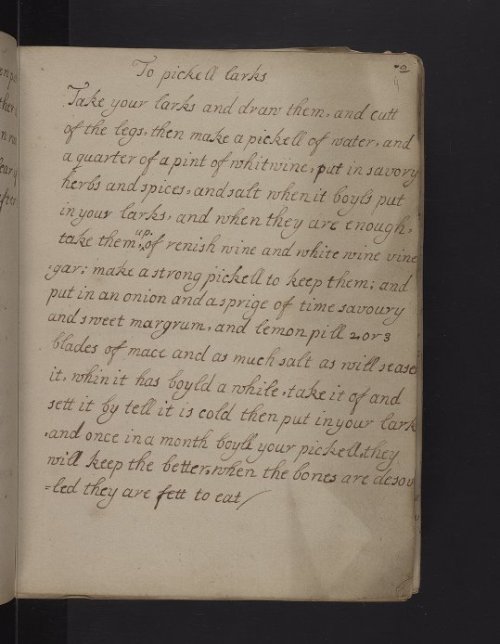 To pickell larks
Take your larks and draw them, and cutt
of the legs, then make a pickell of water, and
a quarter of a pint of whitwine, put in savory
herbs and spices, and salt when it boyls put
in your larks, and when they are enough,
take them up: of renish wine and white wine vine
:gar; make a strong pickell to keep them; and
put in an onion and a sprige of time savoury
and sweet margrum, and lemon pill 2, or 3
blades of mace and as much salt as will season
it, whin it has boyld a while, take it of and
sett it by tell it is cold then put in your lark
,and once in a month boyll your pickell, they
will keep the better, when the bones are desou
=led they are fett to eat